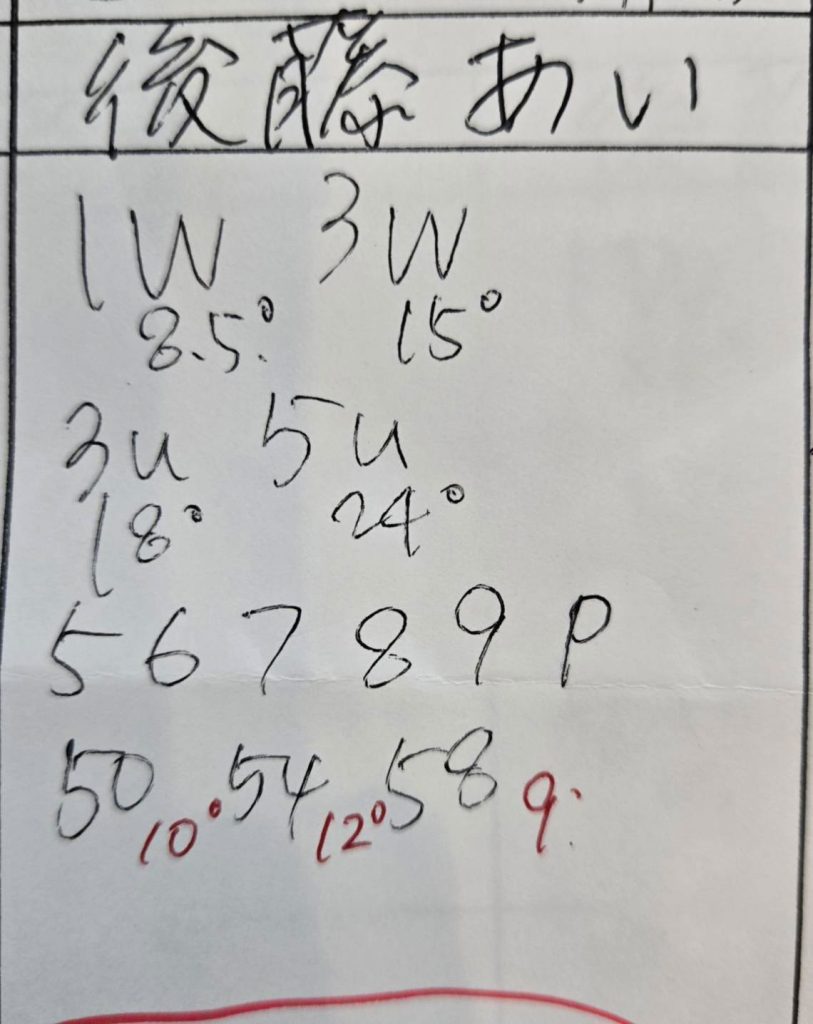 後藤 あい
1W 3W
8.5° 15°
3u 5u
18° 24°
5 6 7 8 9 P
50 10° 54 12° 58 9°